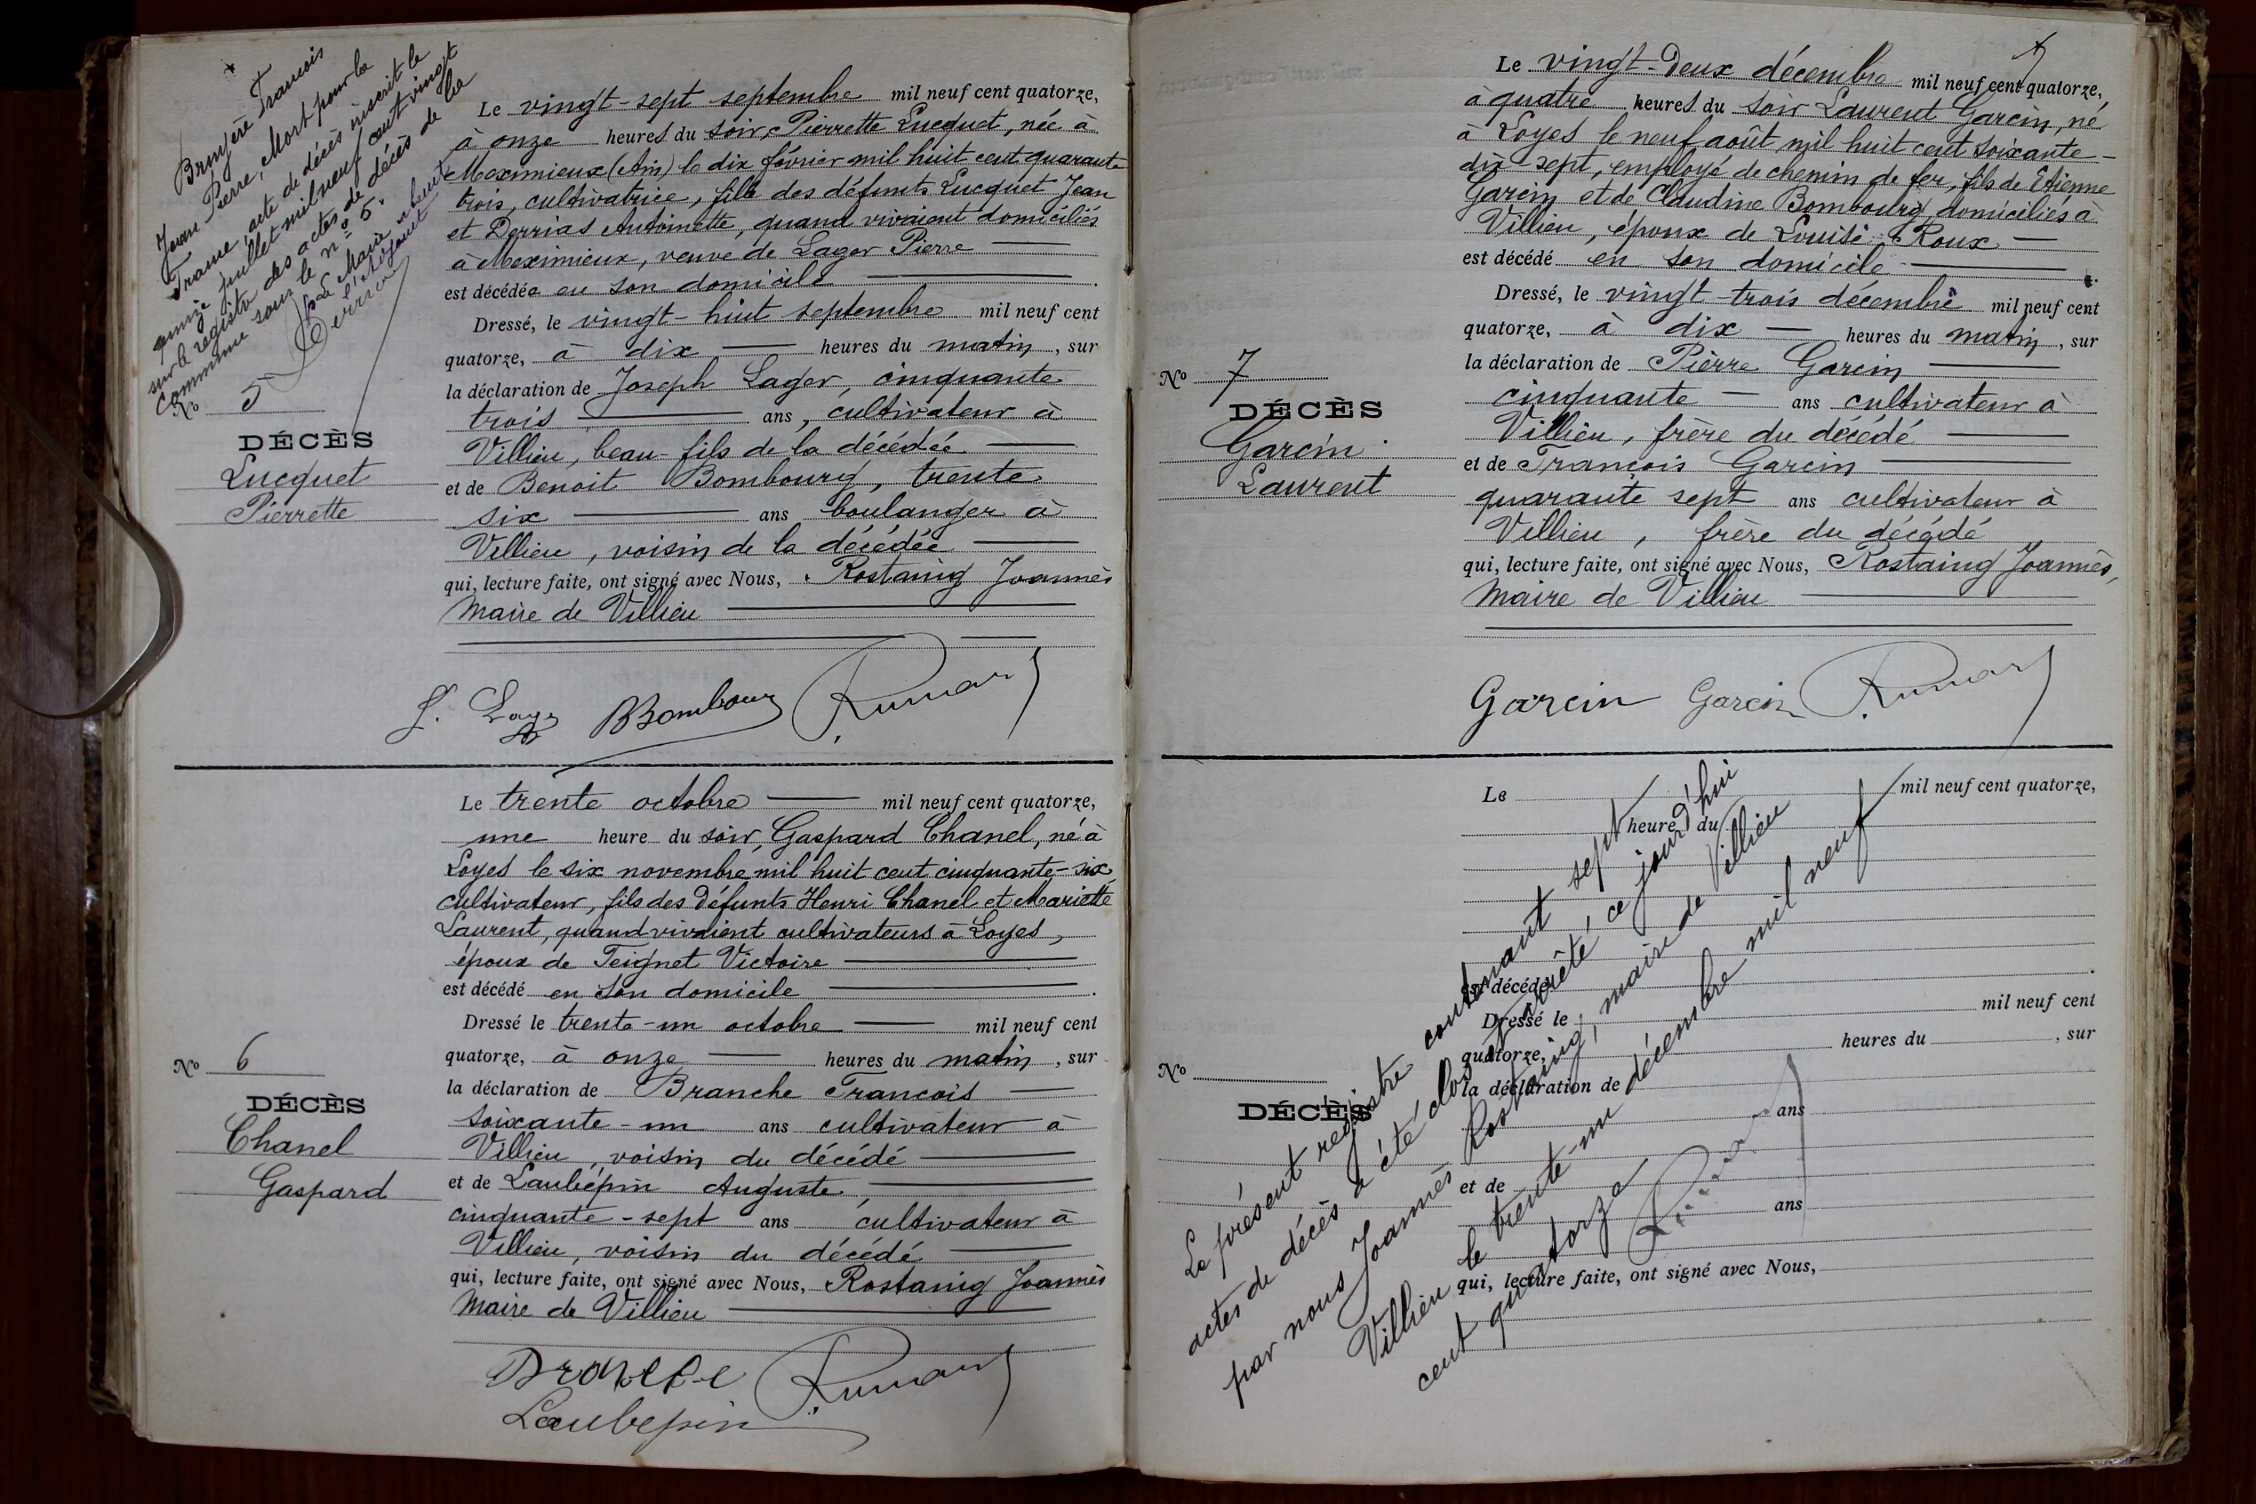 Bruyère François
Jean Pierre, Mort pour la
France acte de décès inscrit le
quinze juillet mil neuf cent vingt
sur le registre des actes de décès de la
commune sous le n° 5.
Le Maire
l'adjoint
Nº 5
DÉCÈS
Lucquet
Pierrette
Le vingt-sept septembre mil neuf cent quatorze,
à onze heures du soir, Pierrette Lucquet, née à
Meximieux (Ain) le dix février mil huit cent quarante
trois, cultivatrice, fille des défunts Lucquet Jean
et Derrias Antoinette, quand vivaient domiciliés
à Meximieux, veuve de Lager Pierre
est décédée en son domicile
Dressé, le vingt-huit septembre mil neuf cent
quatorze, à dix heures du matin, sur
la déclaration de Joseph Lager, cinquante
trois ans, cultivateur à
Villieu, beau-fils de la décédée
et de Benoit Bombourg, trente
six ans boulanger à
Villieu, voisin de la décédée
qui, lecture faite, ont signé avec Nous, Rostaing Joannès
Maire de Villieu
J. Lager BBombourg
Nº 6
DÉCÈS
Chanel
Gaspard
Le trente octobre mil neuf cent quatorze,
une heure du soir, Gaspard Chanel, né à
Loyes le six novembre mil huit cent cinquante-six
cultivateur, fils des défunts Henri Chanel et Mariette
Laurent, quand vivaient cultivateurs à Loyes,
époux de Teignet Victoire
est décédé en son domicile
Dressé le trente-un octobre mil neuf cent
quatorze, à onze heures du matin, sur
la déclaration de Branche François
soixante-un ans cultivateur à
Villieu, voisin du décédé
et de Laubépin Auguste,
cinquante-sept ans cultivateur à
Villieu, voisin du décédé
qui, lecture faite, ont signé avec Nous, Rostaing Joannès
Maire de Villieu
Branche
Laubepin
Nº 7
DÉCÈS
Garcin
Laurent
Le vingt-deux décembre mil neuf cent quatorze,
à quatre heures du soir Laurent Garcin, né
à Loyes le neuf août mil huit cent soixante-
dix-sept, employé de chemin de fer, fils de Etienne
Garcin et de Claudine Bombourg, domiciliés à
Villieu, époux de Louise Roux
est décédé en son domicile
Dressé, le vingt-trois décembre mil neuf cent
quatorze, à dix heures du matin, sur
la déclaration de Pierre Garcin
cinquante ans cultivateur à
Villieu, frère du décédé
et de François Garcin
quarante sept ans cultivateur à
Villieu, frère du décédé
qui, lecture faite, ont signé avec Nous, Rostaing Joannès,
Maire de Villieu
Garcin Garcin
Nº
DÉCÈS
Le mil neuf cent quatorze,
heure du
est décédé
Dressé le mil neuf cent
quatorze, heures du , sur
la déclaration de
ans
et de
ans
qui, lecture faite, ont signé avec Nous,
Le présent registre contenant sept
actes de décès a été clos et arrêté ce jourd'hui
par nous Joannès Rostaing, maire de Villieu
Villieu le trente-un décembre mil neuf
cent quatorze